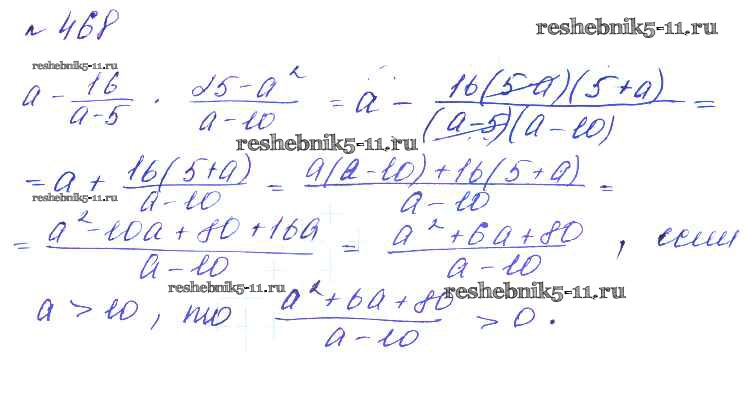 № 468
reshebnik5-11.ru
reshebnik5-11.ru
a - 16/(a-5) · (25-a²)/(a-10) = a - (16(5-a)(5+a))/((a-5)(a-10)) =
reshebnik5-11.ru
= a + (16(5+a))/(a-10) = (a(a-10)+16(5+a))/(a-10) =
reshebnik5-11.ru
= (a²-10a+80+16a)/(a-10) = (a²+6a+80)/(a-10), если
reshebnik5-11.ru
reshebnik5-11.ru
a > 10, то (a²+6a+80)/(a-10) > 0.